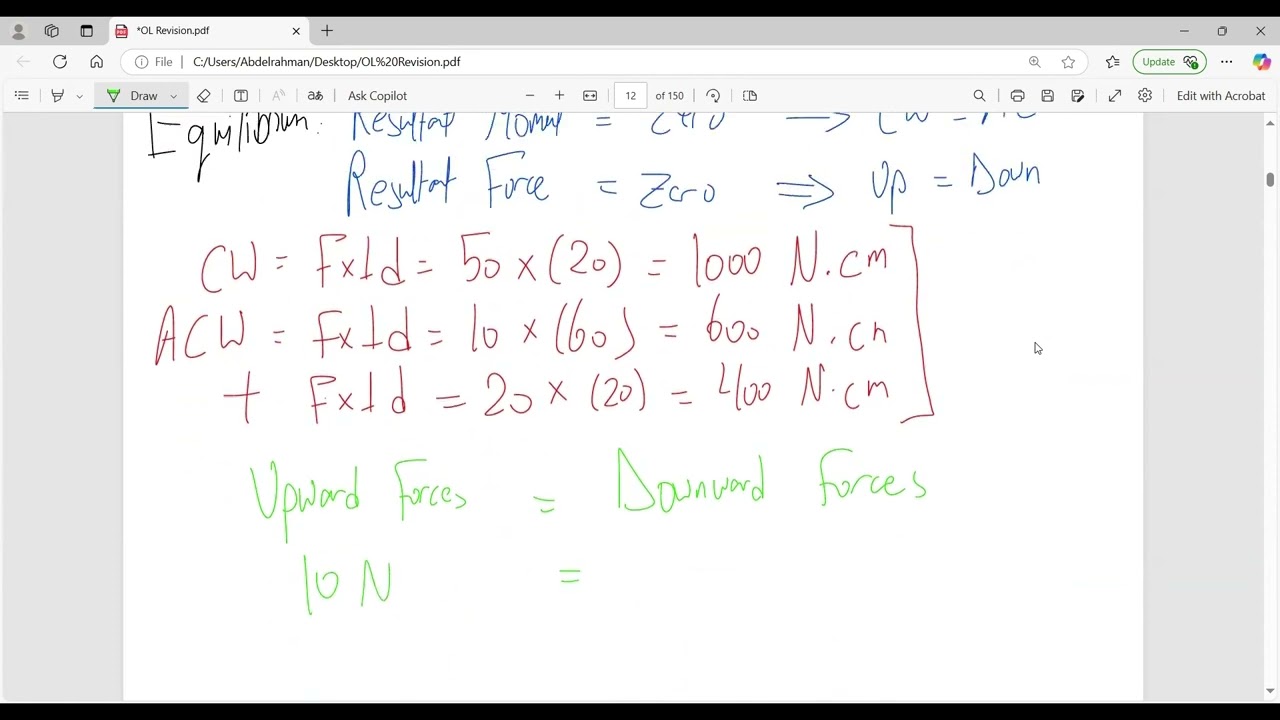 *OL Revision.pdf
File | C:/Users/Abdelrahman/Desktop/OL%20Revision.pdf
Update
Draw
Ask Copilot
12 of 150
Edit with Acrobat
Equilibrium: = Zero ⟹ CW =
Resultat Force = Zero ⟹ Up = Down
CW = Fx⊥d = 50 x (20) = 1000 N.cm
ACW = Fx⊥d = 10 x (60) = 600 N.cm
+ Fx⊥d = 20 x (20) = 400 N.cm
Upward Forces = Downward Forces
10 N =